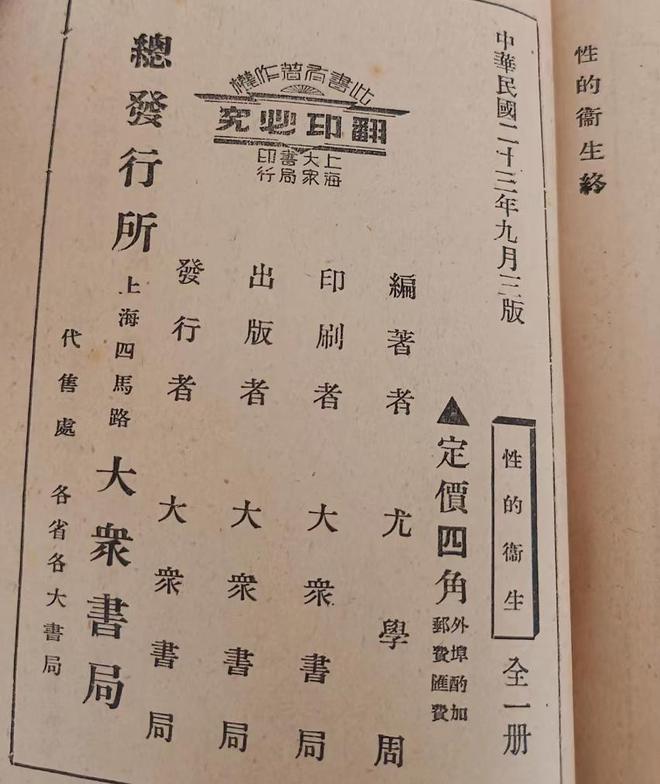 性的衞生終
中華民國二十三年九月三版
性的衞生
全一册
▲定價四角
外埠酌加
郵費匯費
編著者 尤學周
印刷者 大衆書局
出版者 大衆書局
發行者 大衆書局
此書有著作權
翻印必究
上海
大衆
書局
印行
總發行所 上海四馬路 大衆書局
代售處 各省各大書局